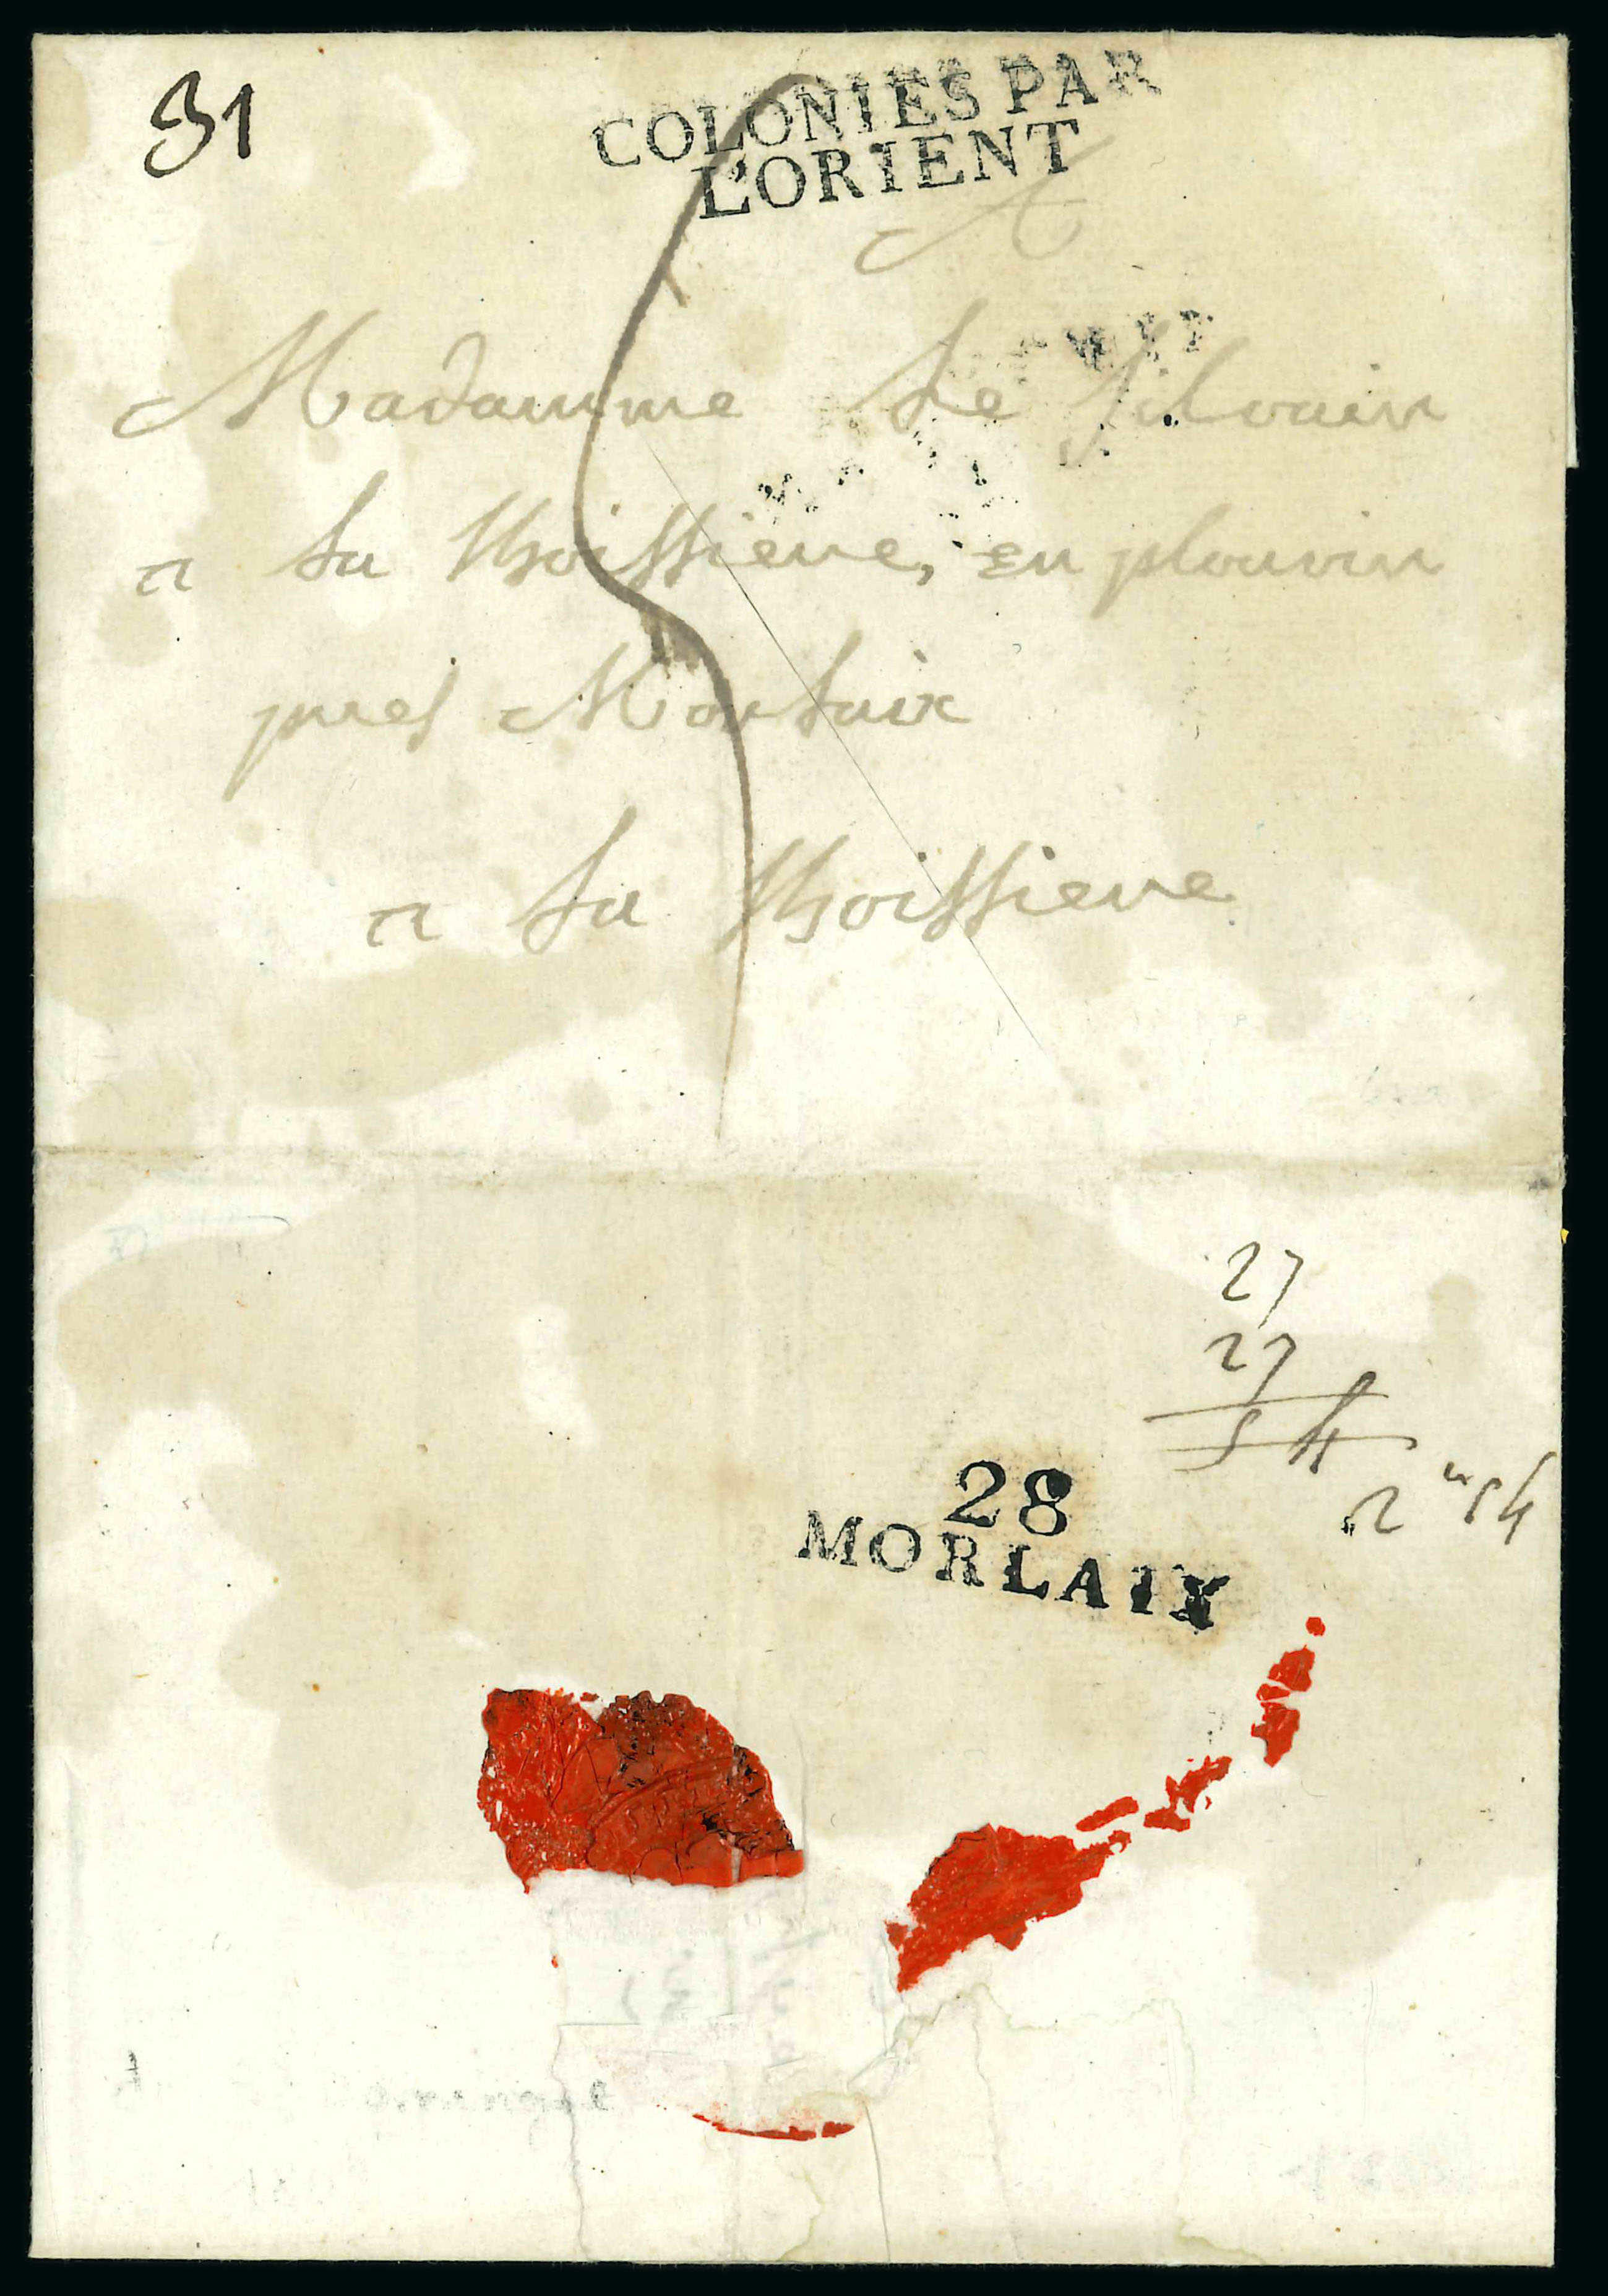 31
COLONIES PAR
L'ORIENT
A
5
Madamme Le Jilvain
a La Boissiere, en plouvin
pres Morlaix
a La Boissiere
27
27
54
28
MORLAIX
2 54